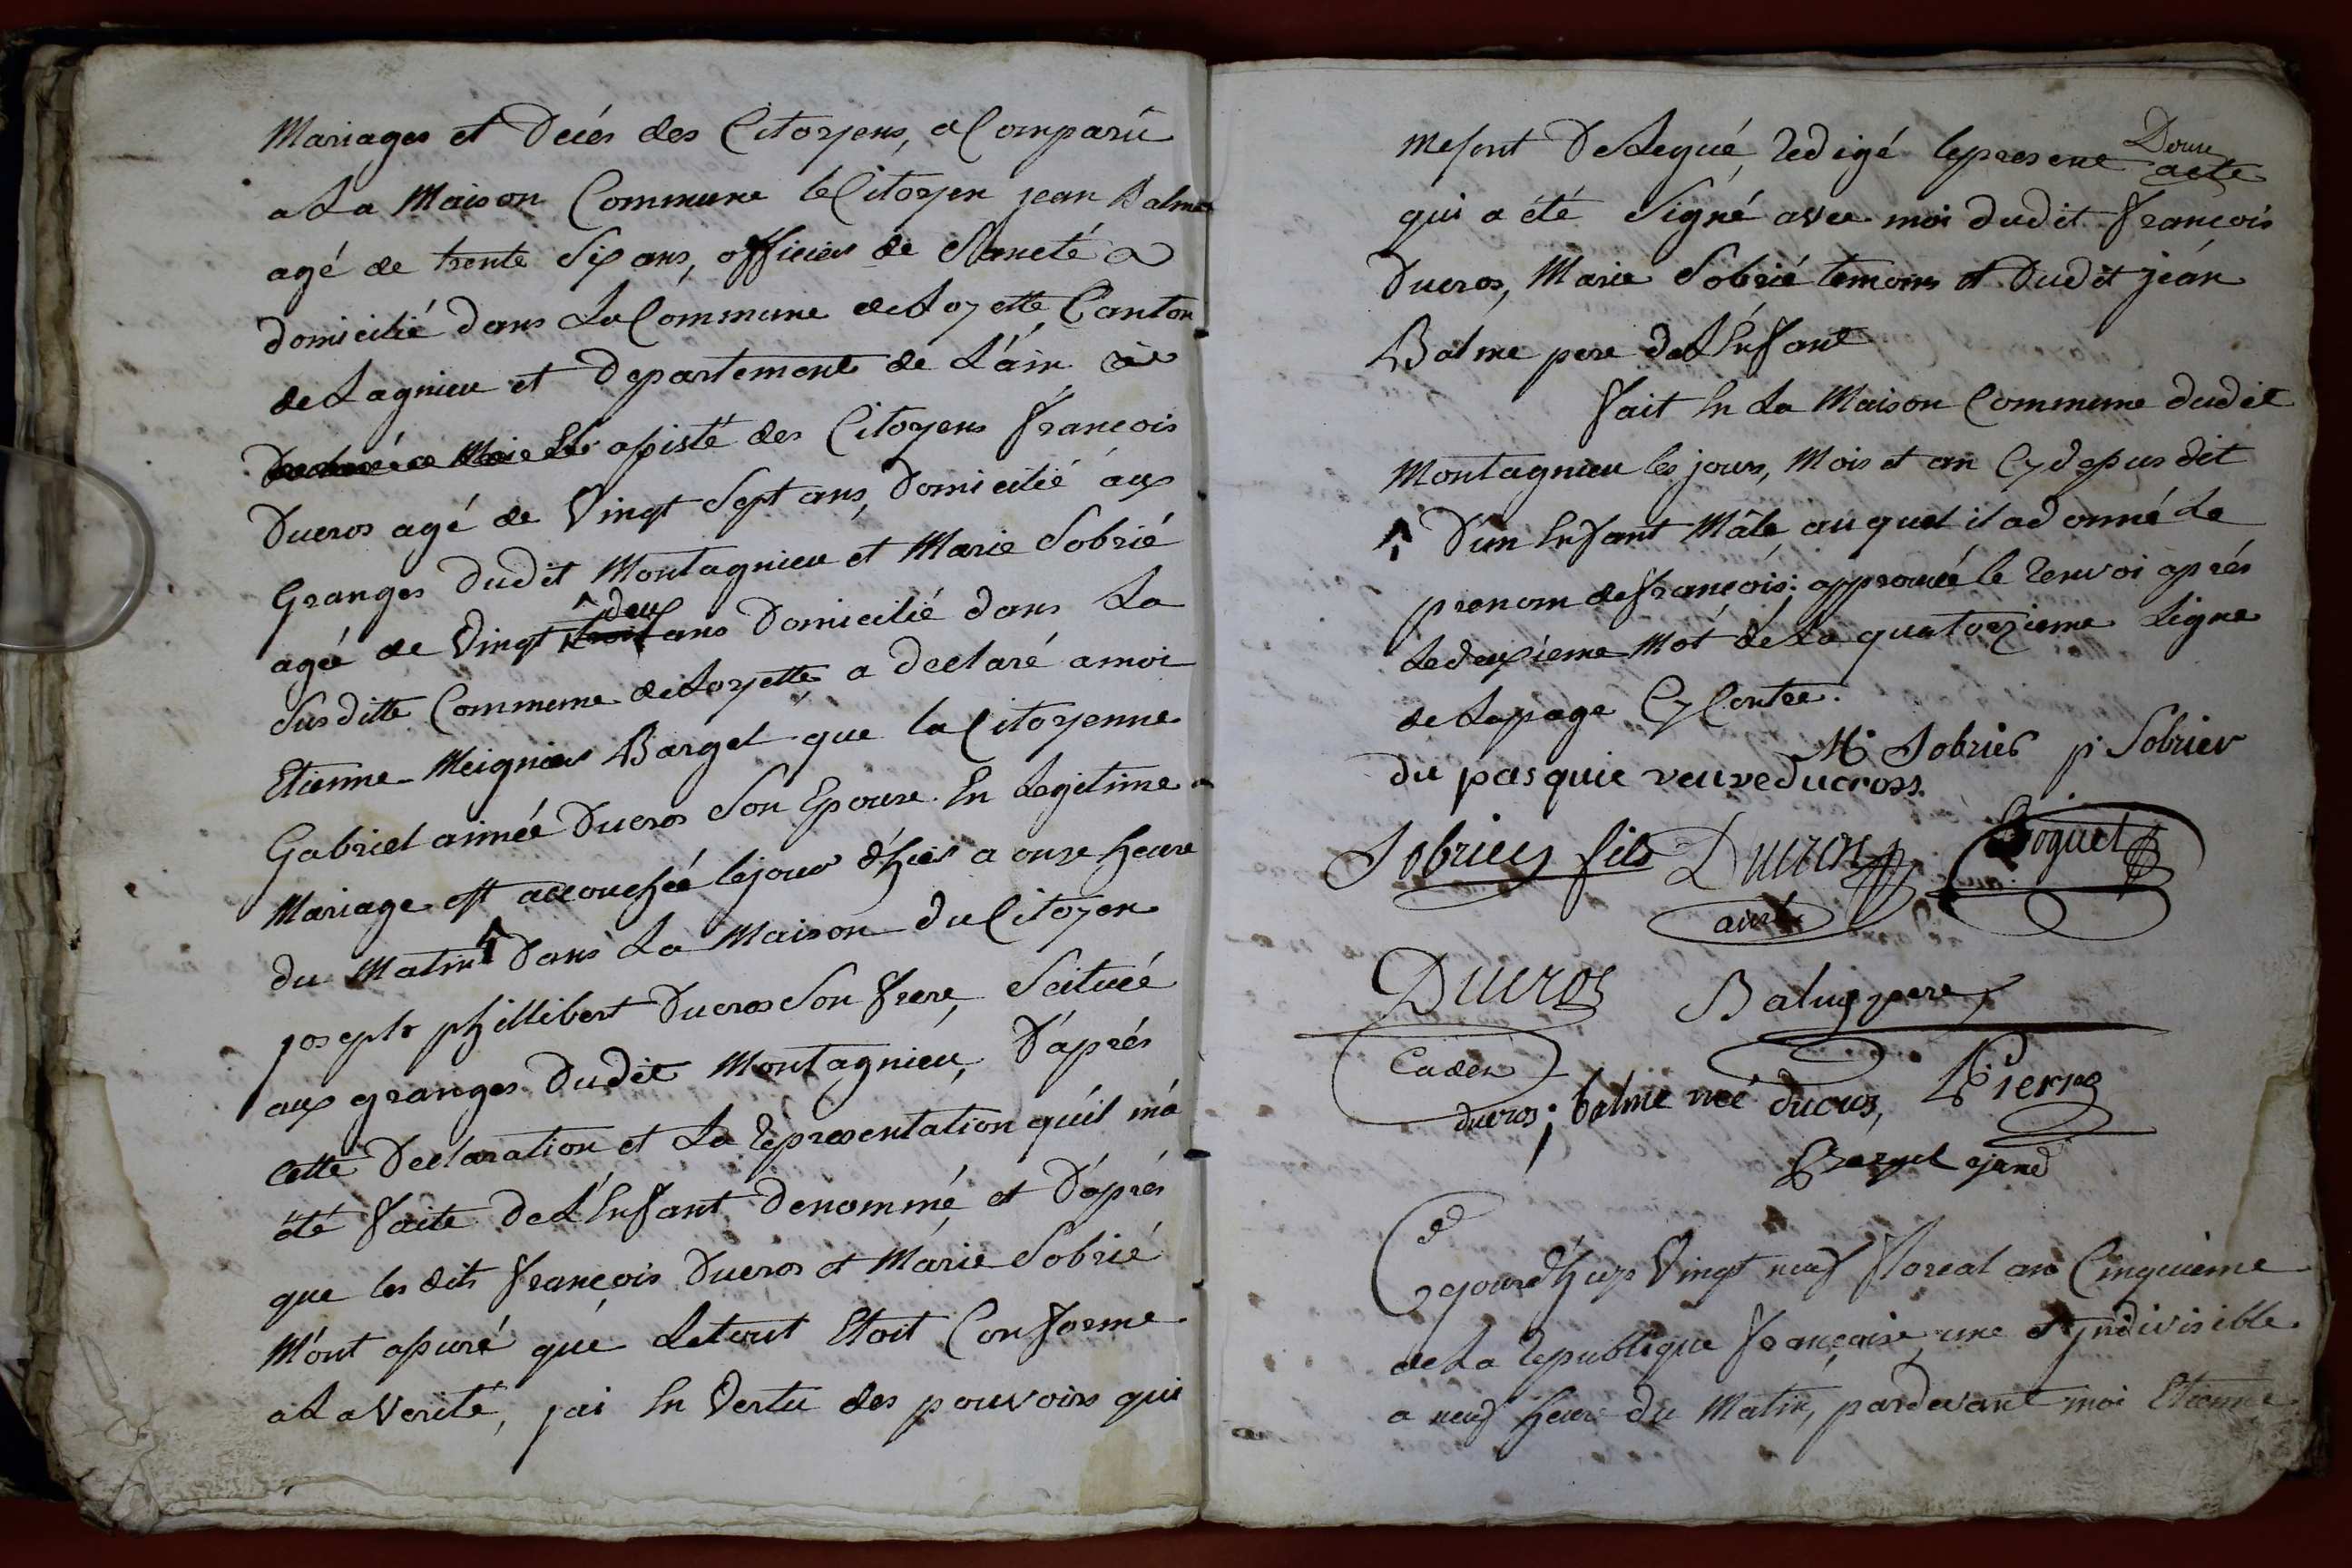 Mariages et Décés des Citoyens, a Comparû
a La Maison Commune le Citoyen jean Balme
agé de trente Six ans, officier de Santeté
domicilié dans La Commune de Loyette Canton
de Lagnieu et Departement de L'ain
assisté des Citoyens François
Ducros agé de Vingt Sept ans, Domicilié aux
Granges dudit Montagnieu et Marie Sobrié
deux
agée de Vingt trois ans Domicilié dans La
Susditte Commune de Loyette a declaré a moi
Etienne Meignier Barget que la Citoyenne
Gabriel aimée Ducros Son Epouse En Legitime
Mariage est accouchée le jour d'hier a onze heure
du Matin dans La Maison du Citoyen
joseph phillibert Ducros Son frere, Scituée
aux granges Dudit Montagnieu, D'aprés
Cette Declaration et La representation qu'il m'a
été faite de L'Enfant denommé et D'aprés
que les dits François Ducros et Marie Sobrié
M'ont assuré que Letout Etoit Conforme
a La Verité, jai En Vertu des pouvoirs qui
Donne
me sont Delegué, redigé le present acte
qui a été Signé avec moi dudit François
Ducros, Marie Sobrié temoins et Dudit jean
Balme pere de L'Enfant
fait En La Maison Commune dudit
Montagnieu les jours, Mois et an Cy dessus dit
D'un Enfant Mâle auquel il a donné Le
prenom de François; approuvé le renvoi aprés
Le deuxieme Mot de La quatorzieme Ligne
de La page Cy Contre.
M. Sobrier p. Sobrier
du pasquie veuve ducross.
Sobrier fils Ducros Boguet
ainé
Ducros Balme pere
Cadet
ducros; balme née ducros, Pierre
Barget
Cejourd'huy Vingt neuf floreal an Cinquieme
de La republique française, une et Jndivisible
a neuf heure du Matin, pardevant moi Etienne